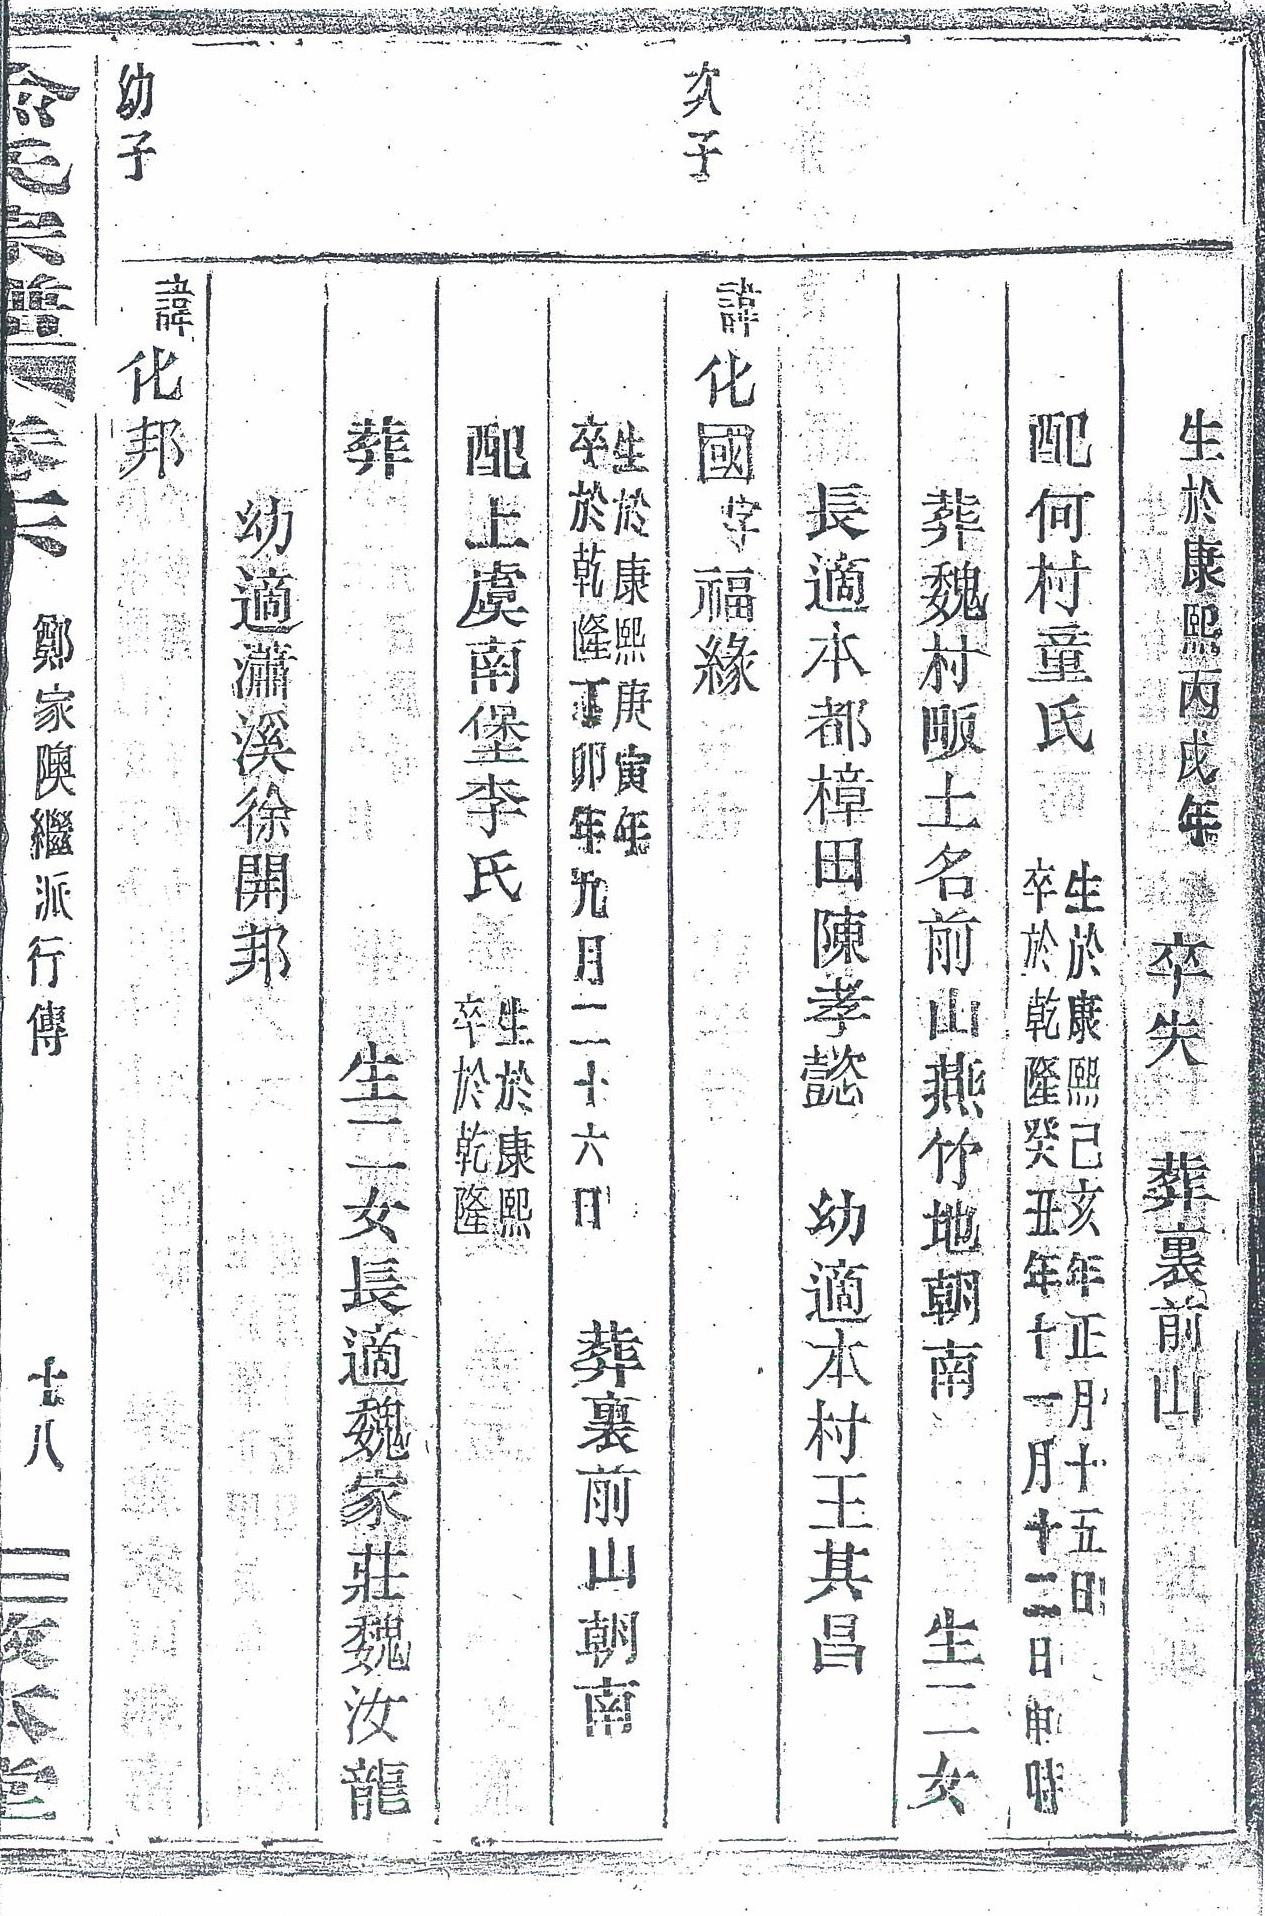 生於康熙丙戌年 卒失 葬裏前山
配何村童氏 生於康熙己亥年正月十五日
卒於乾隆癸丑年十一月十二日申時
葬魏村畈土名前山燕竹地朝南 生二女
長適本都樟田陳孝懿 幼適本村王其昌
次子
諱化國字福緣
生於康熙庚寅年
卒於乾隆丁卯年九月二十六日 葬裏前山朝南
配上虞南堡李氏 生於康熙
卒於乾隆
葬 生二女長適魏家莊魏汝龍
幼適瀟溪徐開邦
幼子
諱化邦
俞氏宗譜 卷六 鄭家陳繼派行傳 十八 敦本堂